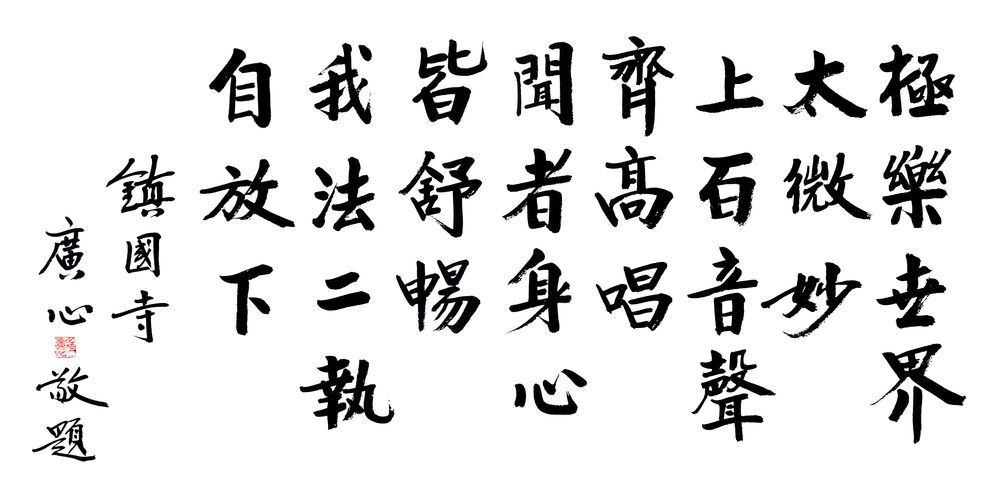 極樂世界
太微妙
上百音聲
齊高唱
聞者身心
皆舒暢
我法二執
自放下
鎮國寺
廣心
敬題